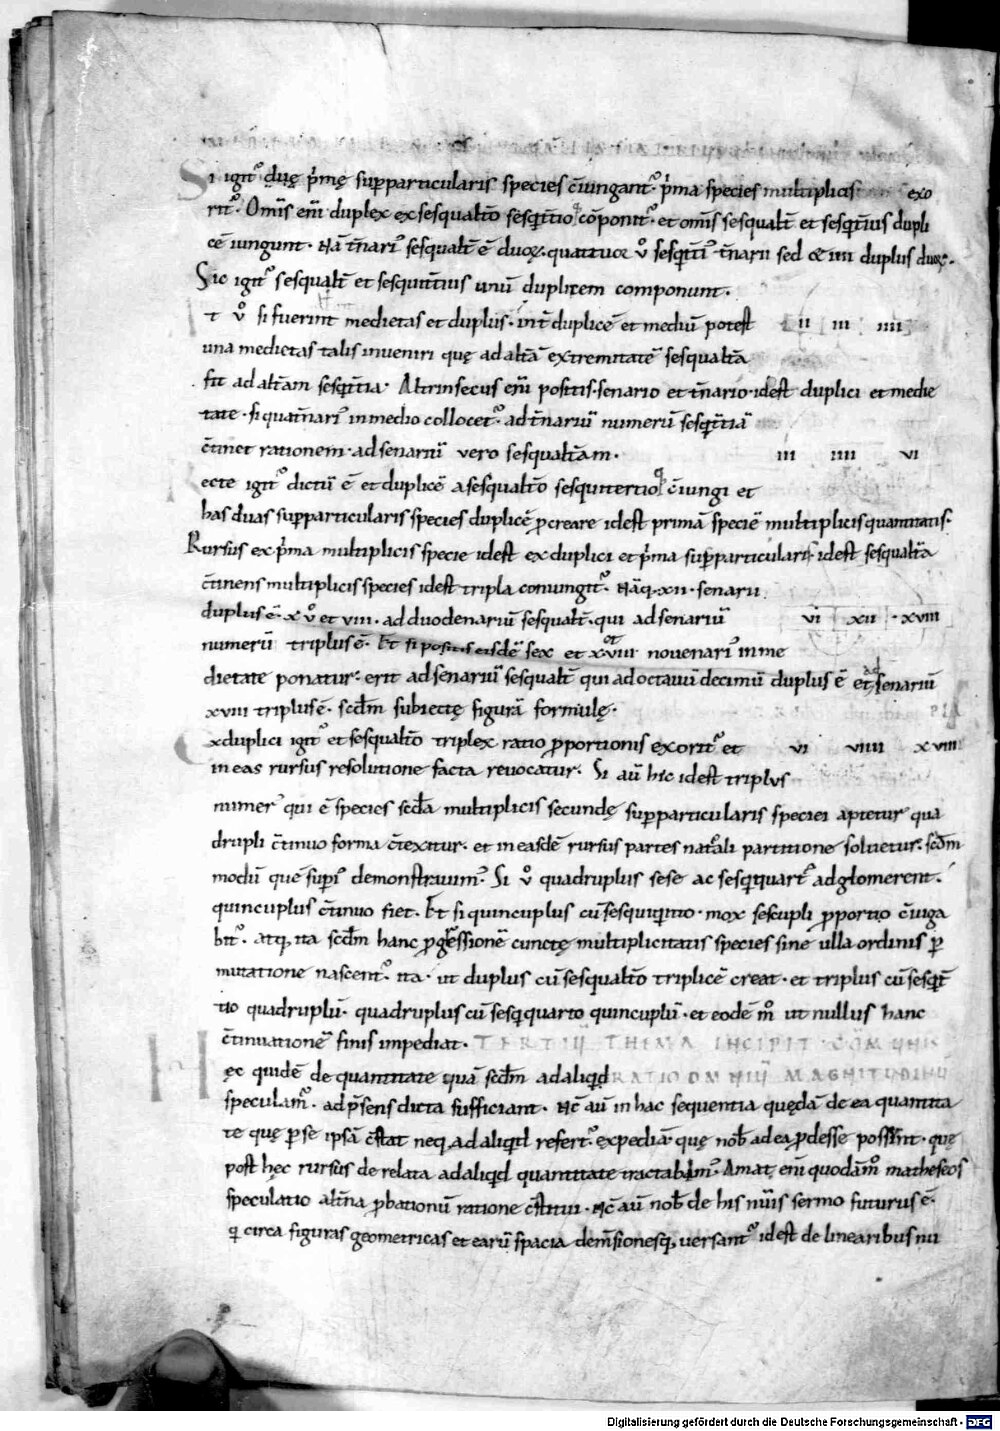 Si igit᷒ duę p̄mę supparticularis species c̄iungant᷒. p̄ma species multiplicis exo
rit᷒. Om̄is eni duplex ex sesqualt̄o sesqt̄tio cōponit᷒. et om̄is sesqualt̄ et sesqt̄ius dupli
cē iungunt. Nā t̄nari᷒ sesqualt̄ ē duoꝝ. quattuor v̊ sesqt̄ti᷒ t̄narii sed & iiii duplus duoꝝ.
Sic igit᷒ sesqualt̄ et sesquit̄tius unū duplicem componunt.
t v̊ si fuerint medietas et duplus. int̄ duplicē et mediū potest ii iii iiii
una medietas talis inveniri quę ad alt̄ā extremitatē sesqualt̄a
fit ad alt̄am sesqt̄tia. Altrinsecus eni positis. senario et t̄nario. idest duplici et medie
tate. si quat̄nari᷒ in medio collocet᷒. ad t̄nariū numerū sesqt̄tiā
c̄tinet rationem. ad senariū vero sesqualt̄am. iii iiii vi
ecte igit᷒ dictū ē et duplicē a sesqualt̄o sesquitertioq᷒ c̄iungi et
has duas supparticularis species duplicē pcreare idest primā speciē multiplicis quantitatis.
Rursus ex p̄ma multiplicis specie idest ex duplici et p̄ma supparticulari. idest sesqualt̄a
c̄tinens multiplicis species idest tripla coniungit᷒. Nāq. xii. senarii
duplus ē. xv̊ et viii. ad duodenariū sesqualt̄. qui ad senariū vi xii xviii
numerū triplus ē. Et si positis eisdē sex et xviii novenari᷒ in me
dietate ponatur. erit ad senariū sesqualt̄ qui ad octavū decimū duplus ē et ad senariū
xviii triplus ē. scd̄m subiectę figurā formulę.
x duplici igit᷒ et sesqualt̄o triplex ratio pportionis exorit᷒ et vi viiii xviii
in eas rursus resolutione facta revocatur. Si aū hic idest triplus
numer᷒ qui ē species scd̄a multiplicis secundę supparticularis speciei aptetur qua
drupli c̄tinuo forma c̄texitur. et in easdē rursus partes nat᷒ali partitione solvetur. scd̄m
modū quē supi᷒ demonstravim᷒. Si v̊ quadruplus sese ac sesqquart᷒ adglomerent.
quincuplus c̄tinuo fiet. Et si quincuplus cū sesquiqinto. mox sescupli pportio c̄iuga
bit᷒. atq, ita scd̄m hanc pgressionē cunctę multiplicitatis species sine ulla ordinis p
mutatione nascent᷒. ita. ut duplus cū sesqualt̄o triplicē creat. et triplus cū sesqt̄
tio quadruplū. quadruplus cū sesqquarto quincuplū. et eodē m̊ ut nullus hanc
c̄tinuationē finis impediat. TERTIŪ THEMA INCIPIT. CŌMUNIS
ęc quidē de quantitate quā scd̄m ad aliqd RATIO OMNIŪ MAGNITUDINŪ
speculam᷒. ad p̄sens dicta sufficiant. Nc̄ aū in hac sequentia quędā de ea quantita
te quę p se ipsā c̄stat neq, ad aliqd refert᷒ expediā. quę nob̄ ad ea pdesse possint. quę
post hęc rursus de relata ad aliqd quantitate tractabim᷒. Amat eni quodām̊ matheseos
speculatio alt̄na pbationū ratione c̄stitui. Nc̄ aū nob̄ de his nūis sermo futurus ē.
q circa figuras geometricas et earū spacia dem̄sionesq, versant᷒ idest de linearibus nu